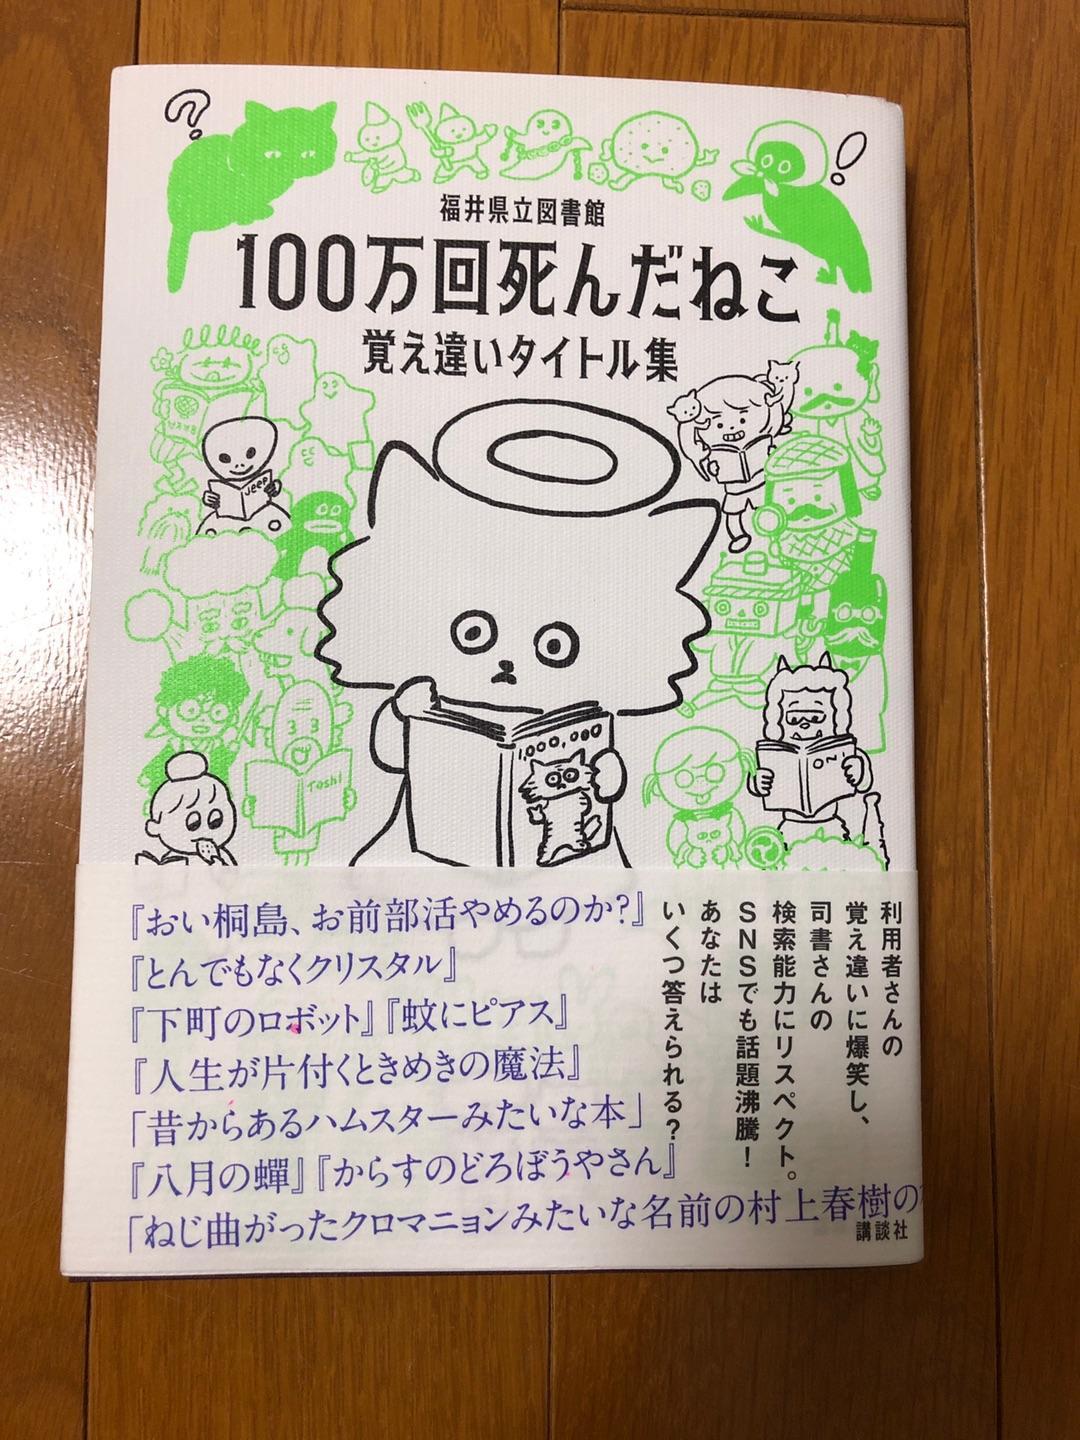 福井県立図書館
100万回死んだねこ
覚え違いタイトル集
Jeep
1,000,000
Toshi
利用者さんの
覚え違いに爆笑し、
司書さんの
検索能力にリスペクト。
SNSでも話題沸騰！
あなたは
いくつ答えられる？
『おい桐島、お前部活やめるのか？』
『とんでもなくクリスタル』
『下町のロボット』『蚊にピアス』
『人生が片付くときめきの魔法』
「昔からあるハムスターみたいな本」
『八月の蟬』『からすのどろぼうやさん』
「ねじ曲がったクロマニョンみたいな名前の村上春樹の
講談社